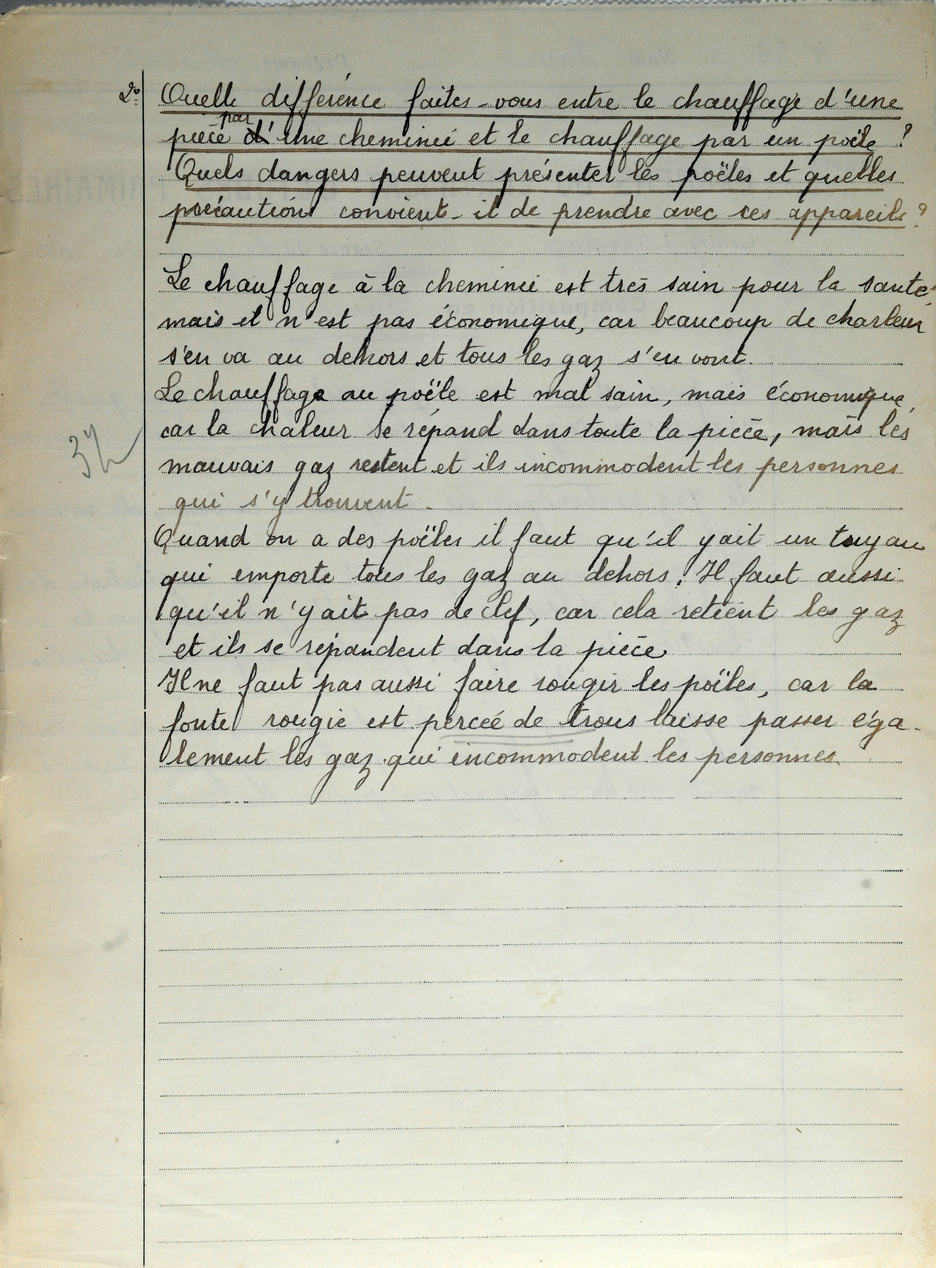 2º Quelle différence faites-vous entre le chauffage d'une
pièce par d'une cheminée et le chauffage par un poële ?
Quels dangers peuvent présenter les poëles et quelles
précautions convient-il de prendre avec ces appareils ?
Le chauffage à la cheminée est très sain pour la santé
mais il n'est pas économique, car beaucoup de charleur
s'en va au dehors et tous les gaz s'en vont.
Le chauffage au poële est mal sain, mais économique,
car la chaleur se répand dans toute la pièce, mais les
mauvais gaz restent et ils incommodent les personnes
qui s'y trouvent.
Quand on a des poëles il faut qu'il y ait un tuyau
qui emporte tous les gaz au dehors. Il faut aussi
qu'il n'y ait pas de clef, car cela retient les gaz
et ils se répandent dans la pièce
Il ne faut pas aussi faire rougir les poëles, car la
fonte rougie est percée de trous laisse passer éga-
lement les gaz qui incommodent les personnes.